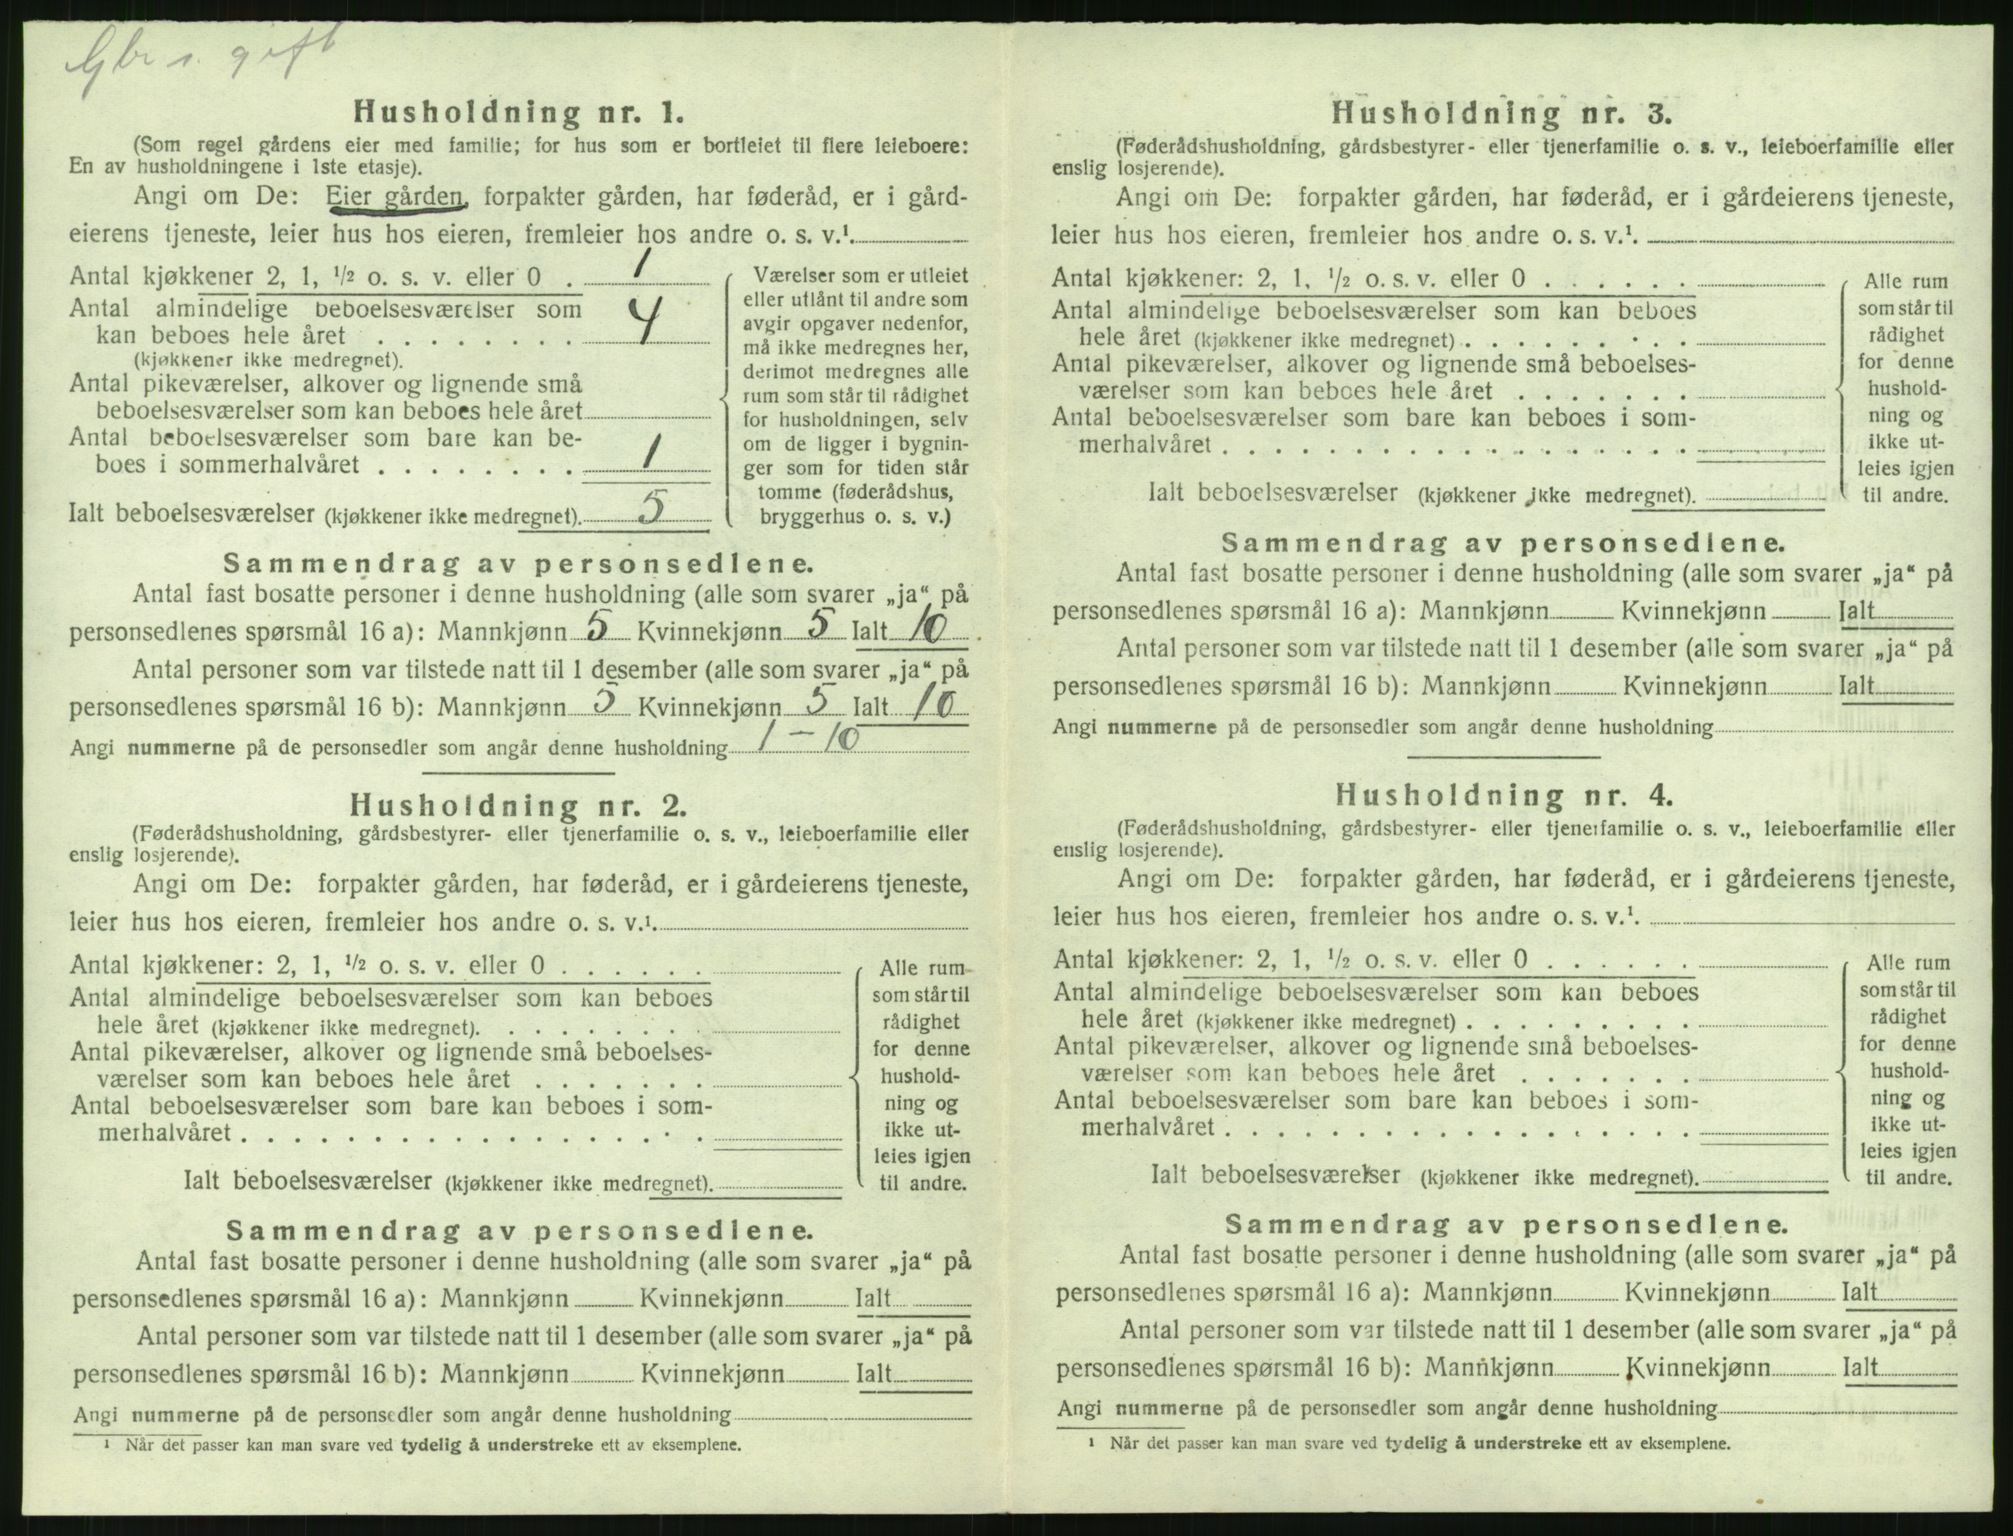 Husholdning nr. 1.
(Som regel gårdens eier med familie; for hus som er bortleiet til flere leieboere:
En av husholdningene i 1ste etasje).
Angi om De: Eier gården, forpakter gården, har føderåd, er i gård-
eierens tjeneste, leier hus hos eieren, fremleier hos andre o. s. v.¹.
Antal kjøkkener 2, 1, ½ o. s. v. eller 0 . 1
Antal almindelige beboelsesværelser som
kan beboes hele året . . . . . . . . 4
(kjøkkener ikke medregnet).
Antal pikeværelser, alkover og lignende små
beboelsesværelser som kan beboes hele året
Antal beboelsesværelser som bare kan be-
boes i sommerhalvåret . . . . . . . . 1
Ialt beboelsesværelser (kjøkkener ikke medregnet). 5
Værelser som er utleiet
eller utlånt til andre som
avgir opgaver nedenfor,
må ikke medregnes her,
derimot medregnes alle
rum som står til rådighet
for husholdningen, selv
om de ligger i bygnin-
ger som for tiden står
tomme (føderådshus,
bryggerhus o. s. v.)
Sammendrag av personsedlene.
Antal fast bosatte personer i denne husholdning (alle som svarer „ja“ på
personsedlenes spørsmål 16 a): Mannkjønn 5 Kvinnekjønn 5 Ialt 10
Antal personer som var tilstede natt til 1 desember (alle som svarer „ja“ på
personsedlenes spørsmål 16 b): Mannkjønn 5 Kvinnekjønn 5 Ialt 10
Angi nummerne på de personsedler som angår denne husholdning 1 – 10
Husholdning nr. 2.
(Føderådshusholdning, gårdsbestyrer- eller tjenerfamilie o. s. v., leieboerfamilie eller
enslig losjerende).
Angi om De: forpakter gården, har føderåd, er i gårdeierens tjeneste,
leier hus hos eieren, fremleier hos andre o. s. v.¹.
Antal kjøkkener: 2, 1, ½ o. s. v. eller 0 . . . . . .
Antal almindelige beboelsesværelser som kan beboes
hele året (kjøkkener ikke medregnet). . . . . . . . .
Antal pikeværelser, alkover og lignende små beboelses-
værelser som kan beboes hele året . . . . . . .
Antal beboelsesværelser som bare kan beboes i som-
merhalvåret . . . . . . . . . . . . . . . . . .
Ialt beboelsesværelser (kjøkkener ikke medregnet).
Alle rum
som står til
rådighet
for denne
hushold-
ning og
ikke ut-
leies igjen
til andre.
Sammendrag av personsedlene.
Antal fast bosatte personer i denne husholdning (alle som svarer „ja“ på
personsedlenes spørsmål 16 a): Mannkjønn Kvinnekjønn Ialt
Antal personer som var tilstede natt til 1 desember (alle som svarer „ja“ på
personsedlenes spørsmål 16 b): Mannkjønn Kvinnekjønn Ialt
Angi nummerne på de personsedler som angår denne husholdning
¹ Når det passer kan man svare ved tydelig å understreke ett av eksemplene.
Husholdning nr. 3.
(Føderådshusholdning, gårdsbestyrer- eller tjenerfamilie o. s. v., leieboerfamilie eller
enslig losjerende).
Angi om De: forpakter gården, har føderåd, er i gårdeierens tjeneste,
leier hus hos eieren, fremleier hos andre o. s. v.¹.
Antal kjøkkener: 2, 1, ½ o. s. v. eller 0 . . . . . .
Antal almindelige beboelsesværelser som kan beboes
hele året (kjøkkener ikke medregnet) . . . . . . . . .
Antal pikeværelser, alkover og lignende små beboelses-
værelser som kan beboes hele året . . . . . . .
Antal beboelsesværelser som bare kan beboes i som-
merhalvåret . . . . . . . . . . . . . . . . . .
Ialt beboelsesværelser (kjøkkener ikke medregnet).
Alle rum
som står til
rådighet
for denne
hushold-
ning og
ikke ut-
leies igjen
til andre.
Sammendrag av personsedlene.
Antal fast bosatte personer i denne husholdning (alle som svarer „ja“ på
personsedlenes spørsmål 16 a): Mannkjønn Kvinnekjønn Ialt
Antal personer som var tilstede natt til 1 desember (alle som svarer „ja“ på
personsedlenes spørsmål 16 b): Mannkjønn Kvinnekjønn Ialt
Angi nummerne på de personsedler som angår denne husholdning
Husholdning nr. 4.
(Føderådshusholdning, gårdsbestyrer- eller tjenerfamilie o. s. v., leieboerfamilie eller
enslig losjerende).
Angi om De: forpakter gården, har føderåd, er i gårdeierens tjeneste,
leier hus hos eieren, fremleier hos andre o. s. v.¹.
Antal kjøkkener: 2, 1, ½ o. s. v. eller 0 . . . . . .
Antal almindelige beboelsesværelser som kan beboes
hele året (kjøkkener ikke medregnet) . . . . . . . . .
Antal pikeværelser, alkover og lignende små beboelses-
værelser som kan beboes hele året . . . . . . .
Antal beboelsesværelser som bare kan beboes i som-
merhalvåret . . . . . . . . . . . . . . . . . .
Ialt beboelsesværelser (kjøkkener ikke medregnet).
Alle rum
som står til
rådighet
for denne
hushold-
ning og
ikke ut-
leies igjen
til andre.
Sammendrag av personsedlene.
Antal fast bosatte personer i denne husholdning (alle som svarer „ja“ på
personsedlenes spørsmål 16 a): Mannkjønn Kvinnekjønn Ialt
Antal personer som var tilstede natt til 1 desember (alle som svarer „ja“ på
personsedlenes spørsmål 16 b): Mannkjønn Kvinnekjønn Ialt
Angi nummerne på de personsedler som angår denne husholdning
¹ Når det passer kan man svare ved tydelig å understreke ett av eksemplene.